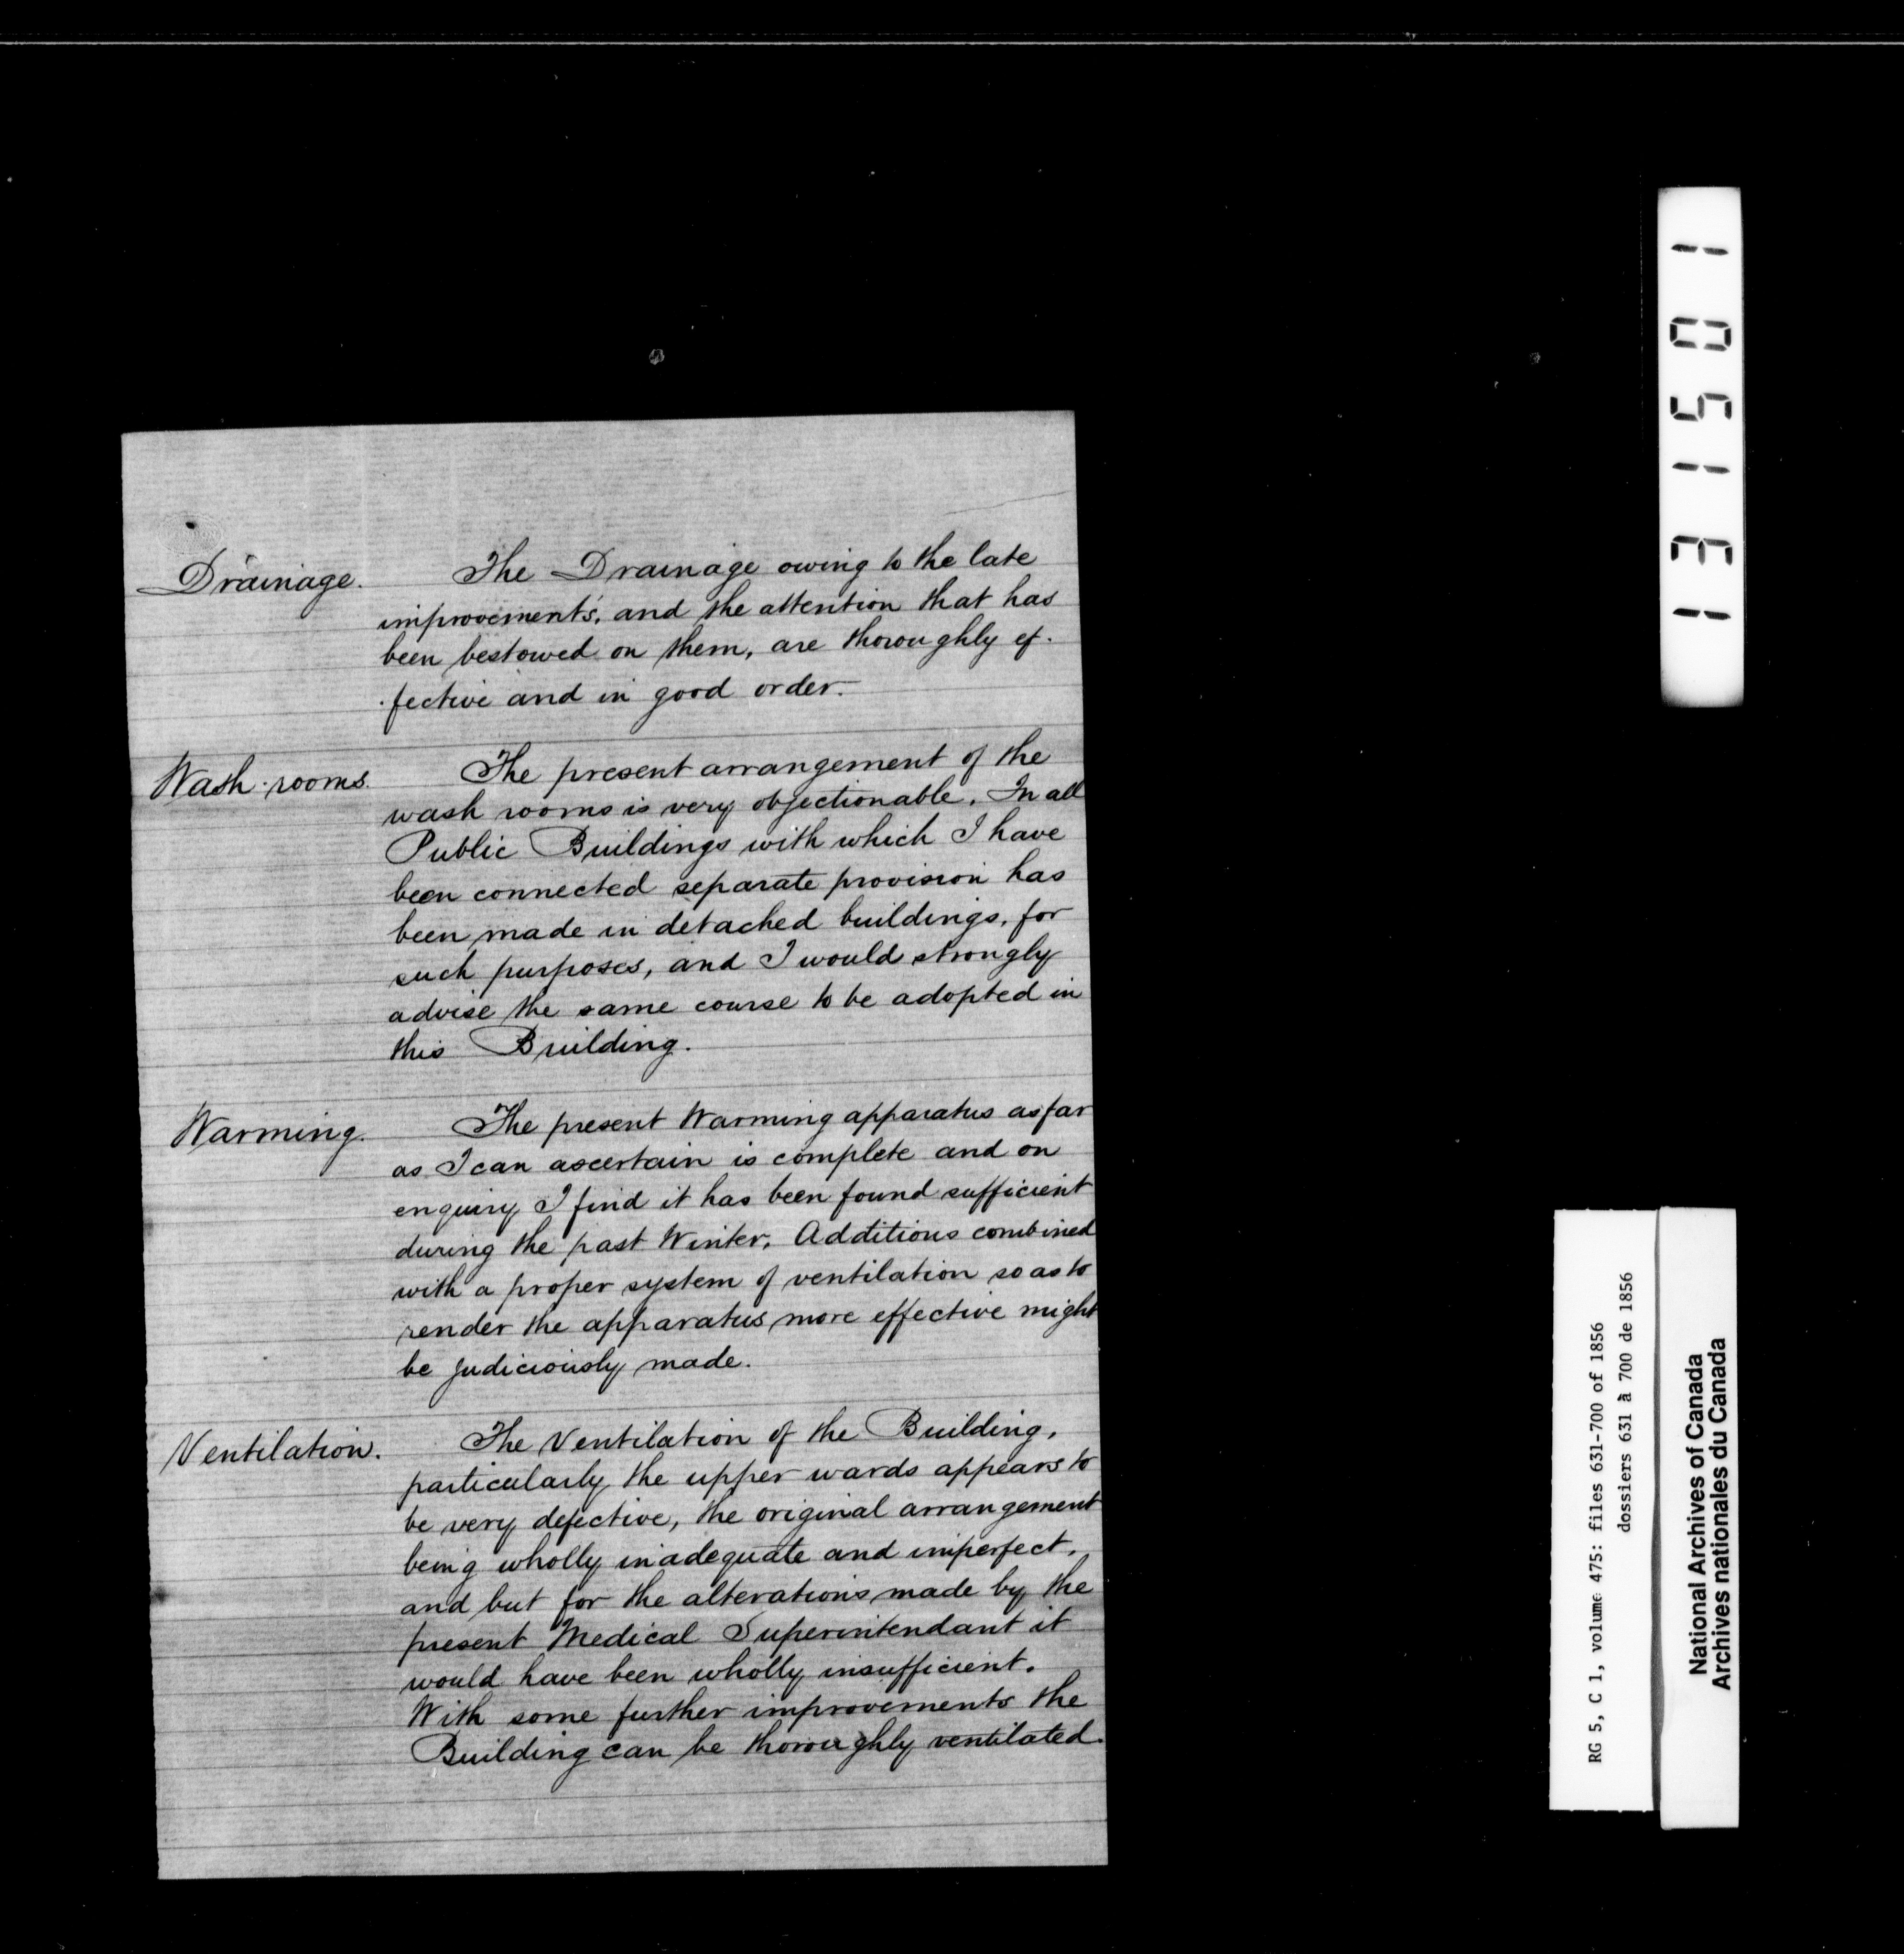 Drainage.
The Drainage owing to the late
improvements, and the attention that has
been bestowed on them, are thoroughly ef-
-fective and in good order.
Wash-rooms.
The present arrangement of the
wash rooms is very objectionable. In all
Public Buildings with which I have
been connected separate provision has
been made in detached buildings, for
such purposes, and I would strongly
advise the same course to be adopted in
this Building.
Warming.
The present Warming apparatus as far
as I can ascertain is complete and on
enquiry I find it has been found sufficient
during the past Winter. Additions combined
with a proper system of ventilation so as to
render the apparatus more effective might
be judiciously made.
Ventilation.
The Ventilation of the Building,
particularly the upper wards appears to
be very defective, the original arrangement
being wholly inadequate and imperfect,
and but for the alterations made by the
present Medical Superintendant it
would have been wholly insufficient.
With some further improvements the
Building can be thoroughly ventilated.
131501
RG 5, C 1, volume 475: files 631-700 of 1856
dossiers 631 à 700 de 1856
National Archives of Canada
Archives nationales du Canada